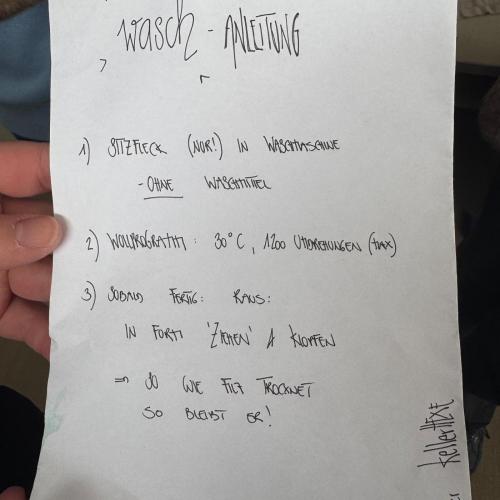 wasch - ANLEITUNG
1) SITZFLECK (NUR!) IN WASCHMASCHINE
- OHNE WASCHMITTEL
2) WOLLPROGRAMM: 30°C, 1200 UMDREHUNGEN (MAX)
3) SOBALD FERTIG: RAUS:
IN FORM 'ZIEHEN' & KLOPFEN
⇒ SO WIE FILZ TROCKNET
SO BLEIBT ER!
KellerHEXE